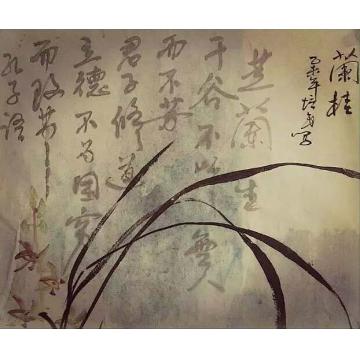 蘭桂
芝蘭生
于谷不以無人
而不芳
君子修道
立德不為困窮
而改节
孔子語